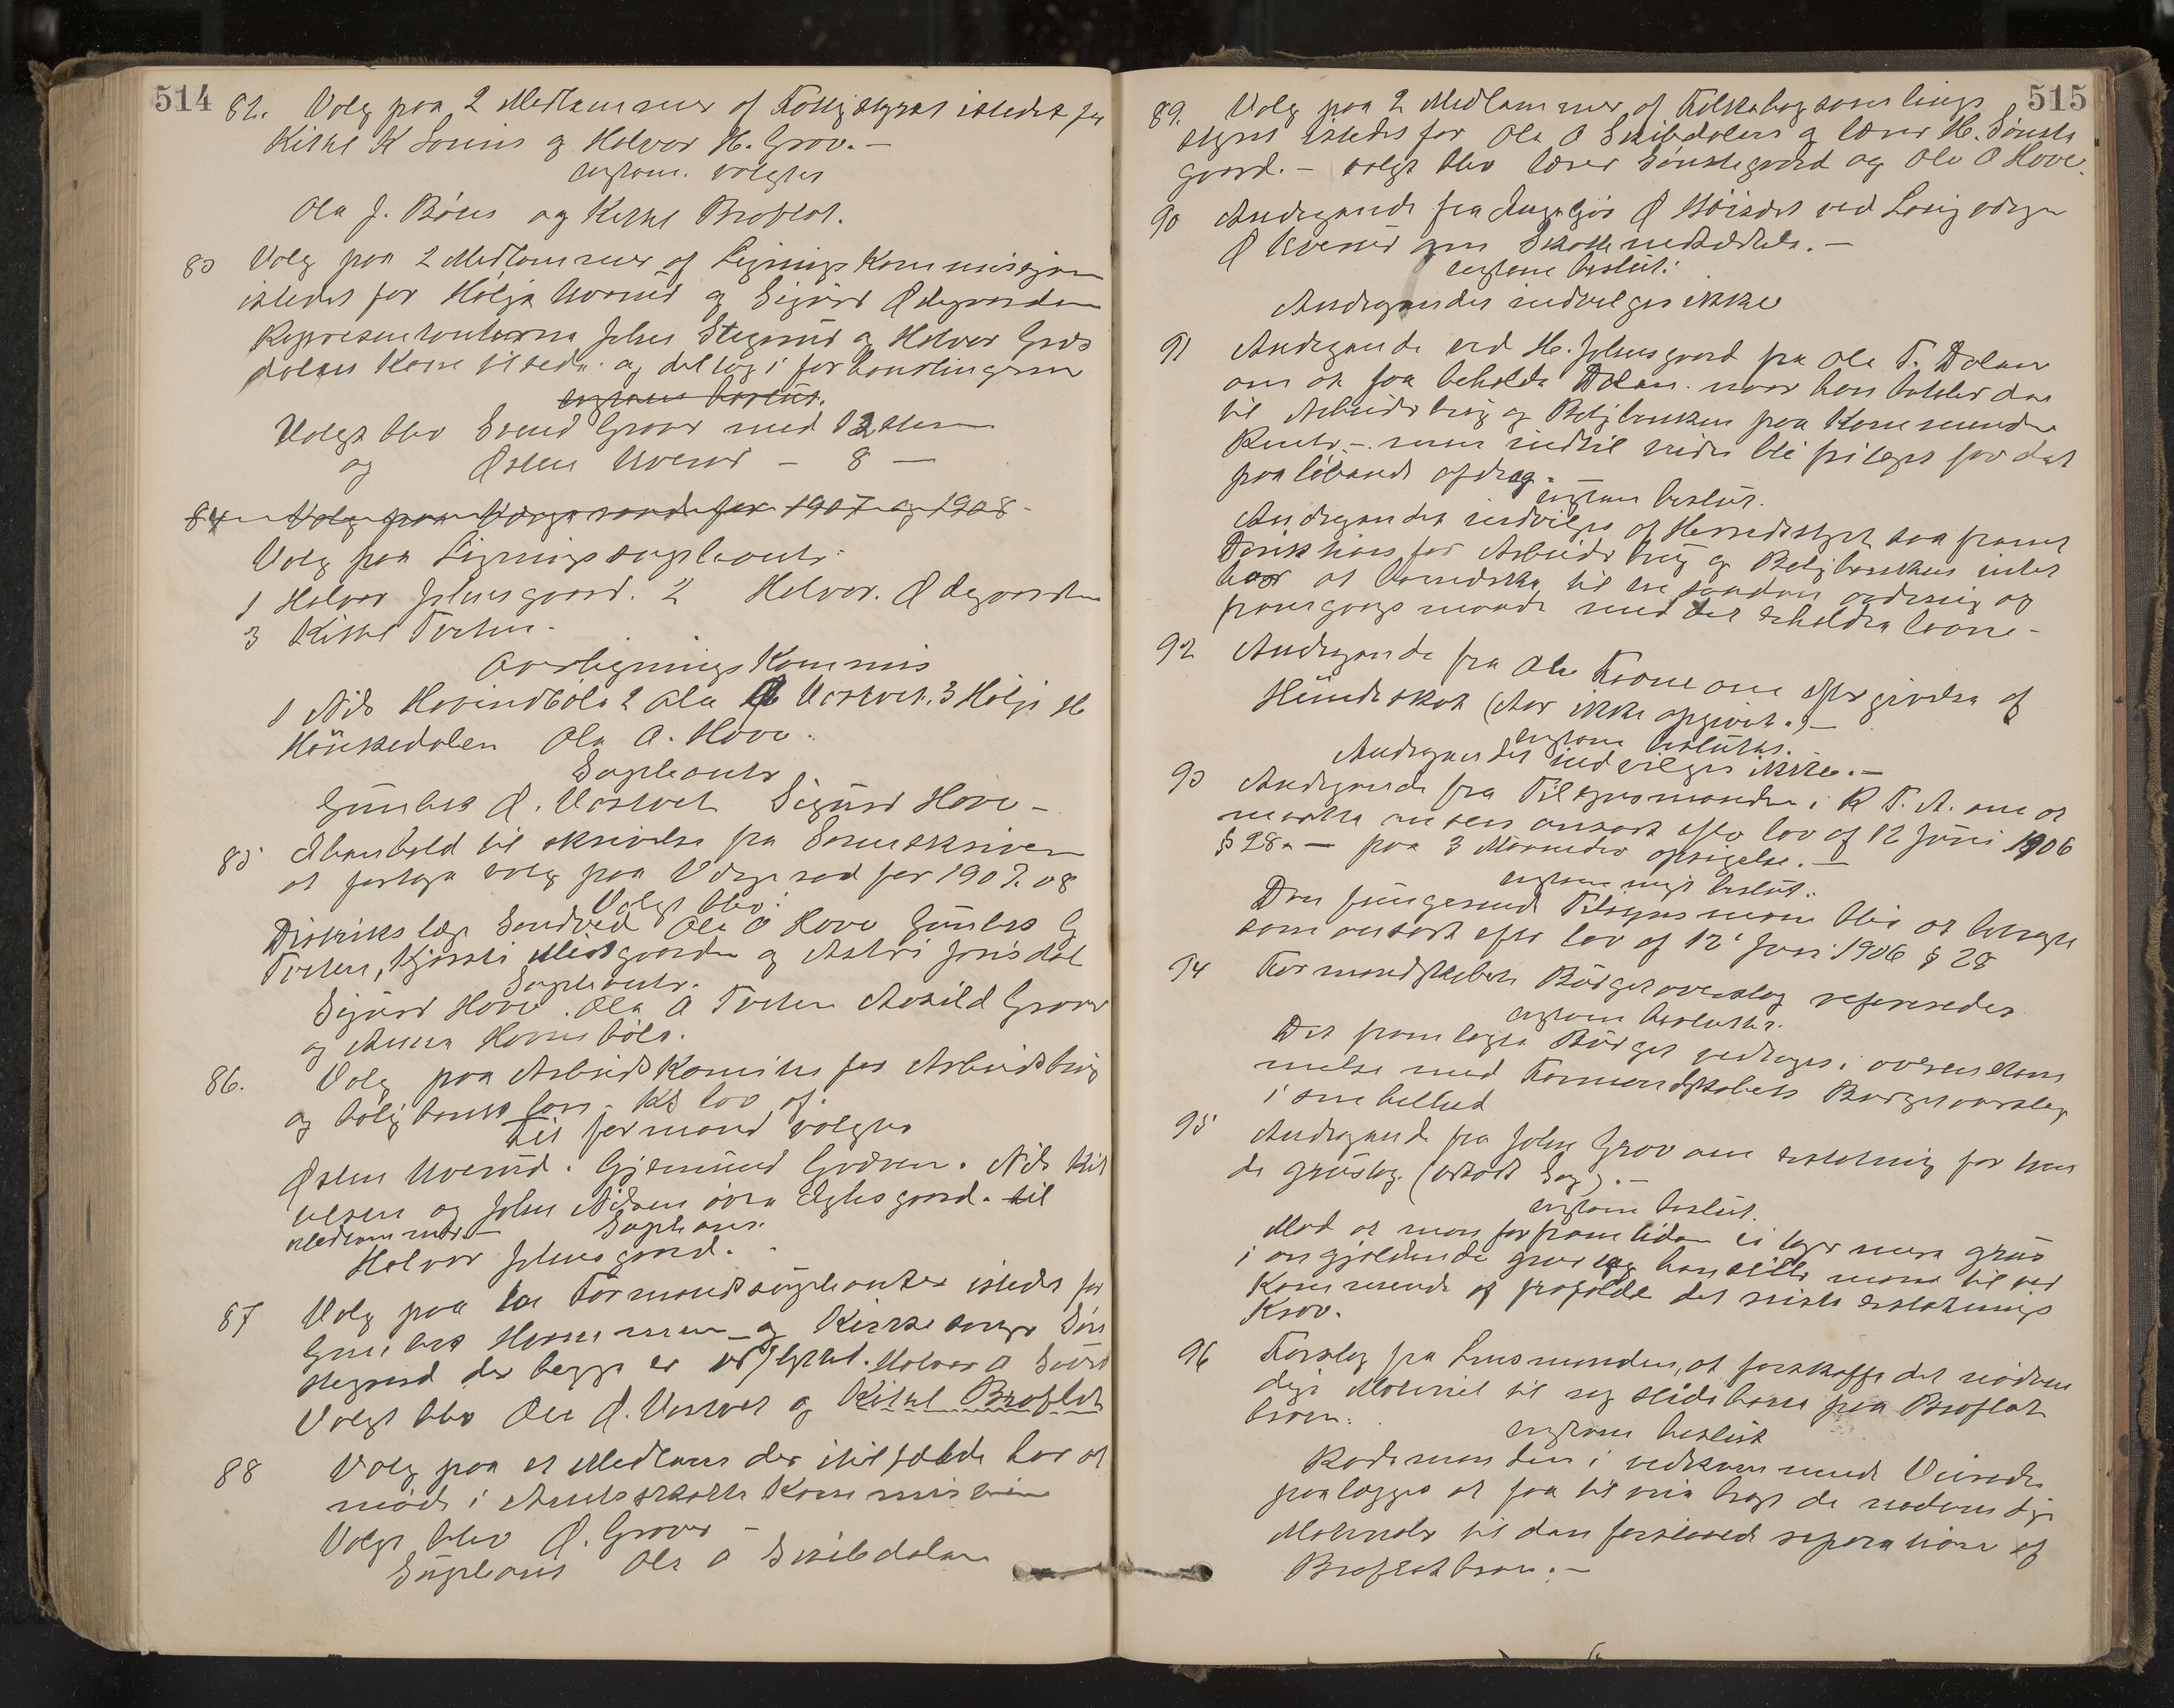 514
82. Valg paa 2 Medlemmer af Fattigstyret istedet for
Kittil K Lonns og Halvor H. Grov. —
enstem. valgtes
Ola J. Böen og Kittil Broflat.
83 Valg paa 2 Medlemmer af Lignings Kommissjon
istedet for Holje Uverud og Sigurd Ødegaarden
Representanterne John Stegerud og Halvor Gros
dalen Kom tilstede og deltog i forhandlingerne
enstem beslut.
Valgt blev Svend Graver med 12 stem
og Østen Uverud — 8 —
84 Valg paa Værgeraad for 1907 og 1908 -
Valg paa Ligningssupleanter
1 Halvor Johnsgaard. 2 Halvor. Ødegaarden
3 Kittil Torten.
Overlignings Kommis
1 Nils Hovindböle 2 Ola Ø Vastveit. 3 Holje H
Hönsedalen Ola O. Hove.
Supleanter
Gunleik Ø. Vastveit Sigurd Hove —
85 I henhold til skrivelse fra Sorenskriveren
at fortage valg paa Værgeraad for 1907. 08
Valgt blev:
Distriktslæge Sandved Ole O Hove Gunleik G
Torten, Kjersti Midtgaarden og Astri Jorisdal
Supleanter.
Sigurd Hove. Ola O Torten Aasild Graver
og Anna Hovindböle.
86. Valg paa Arbeids Komite for Arbeidsbrug
og boligbanklaan. Kf lov af.
Til formand valgtes
Østen Uverud. Gjermund Godren. Nils Kit
ilsen og John Nilsen övre Eglesgaard. til
Medlemmer — Supleant.
Halvor Johnsgaard.
87 Valg paa to Formandssupleanter istedet for
Gunleik og Kirkesanger Söns
tegaard der begge er udflyttet. Halvor O
Valgt blev Ole Ø. Vastveit og Kittil Broflat
88 Valg paa et Medlem der itilfælde har at
möde i Amtsskatte Kommissionen
Valgt blev Ø. Graver —
Supleant Ola O Skibdalen
515
89. Valg paa 2 Medlemmer af Folkebogsamlings
styret istedet for Ola O Skibdalen og lærer H. Sönste
gaard. — valgt blev lærer Sönstegaard og Ole O Hove.
90 Andragende fra Ø ved
Ø Uverud om Skattenedsættelse. —
enstem beslut:
Andragendet indvilges ikke
91 Andragende ved H. Johnsgaard fra Ola T. Dalen
om at faa beholde Dalen. naar han betaler den
til Arbeidsbrug og Boligbanken paa Kommende
Rente, — men indtil videre bli fritaget for det
paa löbende afdrag.
enstem beslut.
Andragendet indvilges af Herredsstyret saa fremt
Direktion for Arbeidsbrug og Boligbanken intet
har at bemærke til en saadan ordning og
fremgangsmaade med det erholdte laane —
92 Andragende fra Ole om eftergivelse af
Hundeskat (Aar ikke opgivet.) —
enstem beslutes.
Andragendet indvilges ikke. —
93 Andragende fra Tilsynsmanden i K. T. A. om at
ansat efter lov af 12 Juni 1906
§ 28. — paa 3 Maaneder opsigelse. —
enstemmigt beslut.:
Den fungerende Tilsynsmann blir at betragte
som ansat efter lov af 12' Juni 1906 § 28
94 Formandskabets Budgetoverslag refereredes
enstem beslutter.
Det fremlagte Budget vedtages i overenskom
melse med Formandskabets Budgetoverslag
i sin helhed
95 Andragende fra John Grov om erstatning for
de grustag. (utsat Sag). —
enstem beslut.
Mod at man for fremtiden ei tager mere grus
i angjældende grustag henstilles man til ved
Kommende at frafalde det reiste erstatnings
Krav.
96 Forslag fra Lensmanden, at forskaffe det nödven
dige Materiel til og slidebane paa Broflat
broen.
enstem beslut
Rodemanden i vedkommende Veirode
paalægges at faa tilveiebragt de nödvendige
Materialer til den forestaaende reperation af
Broflatbroen. —